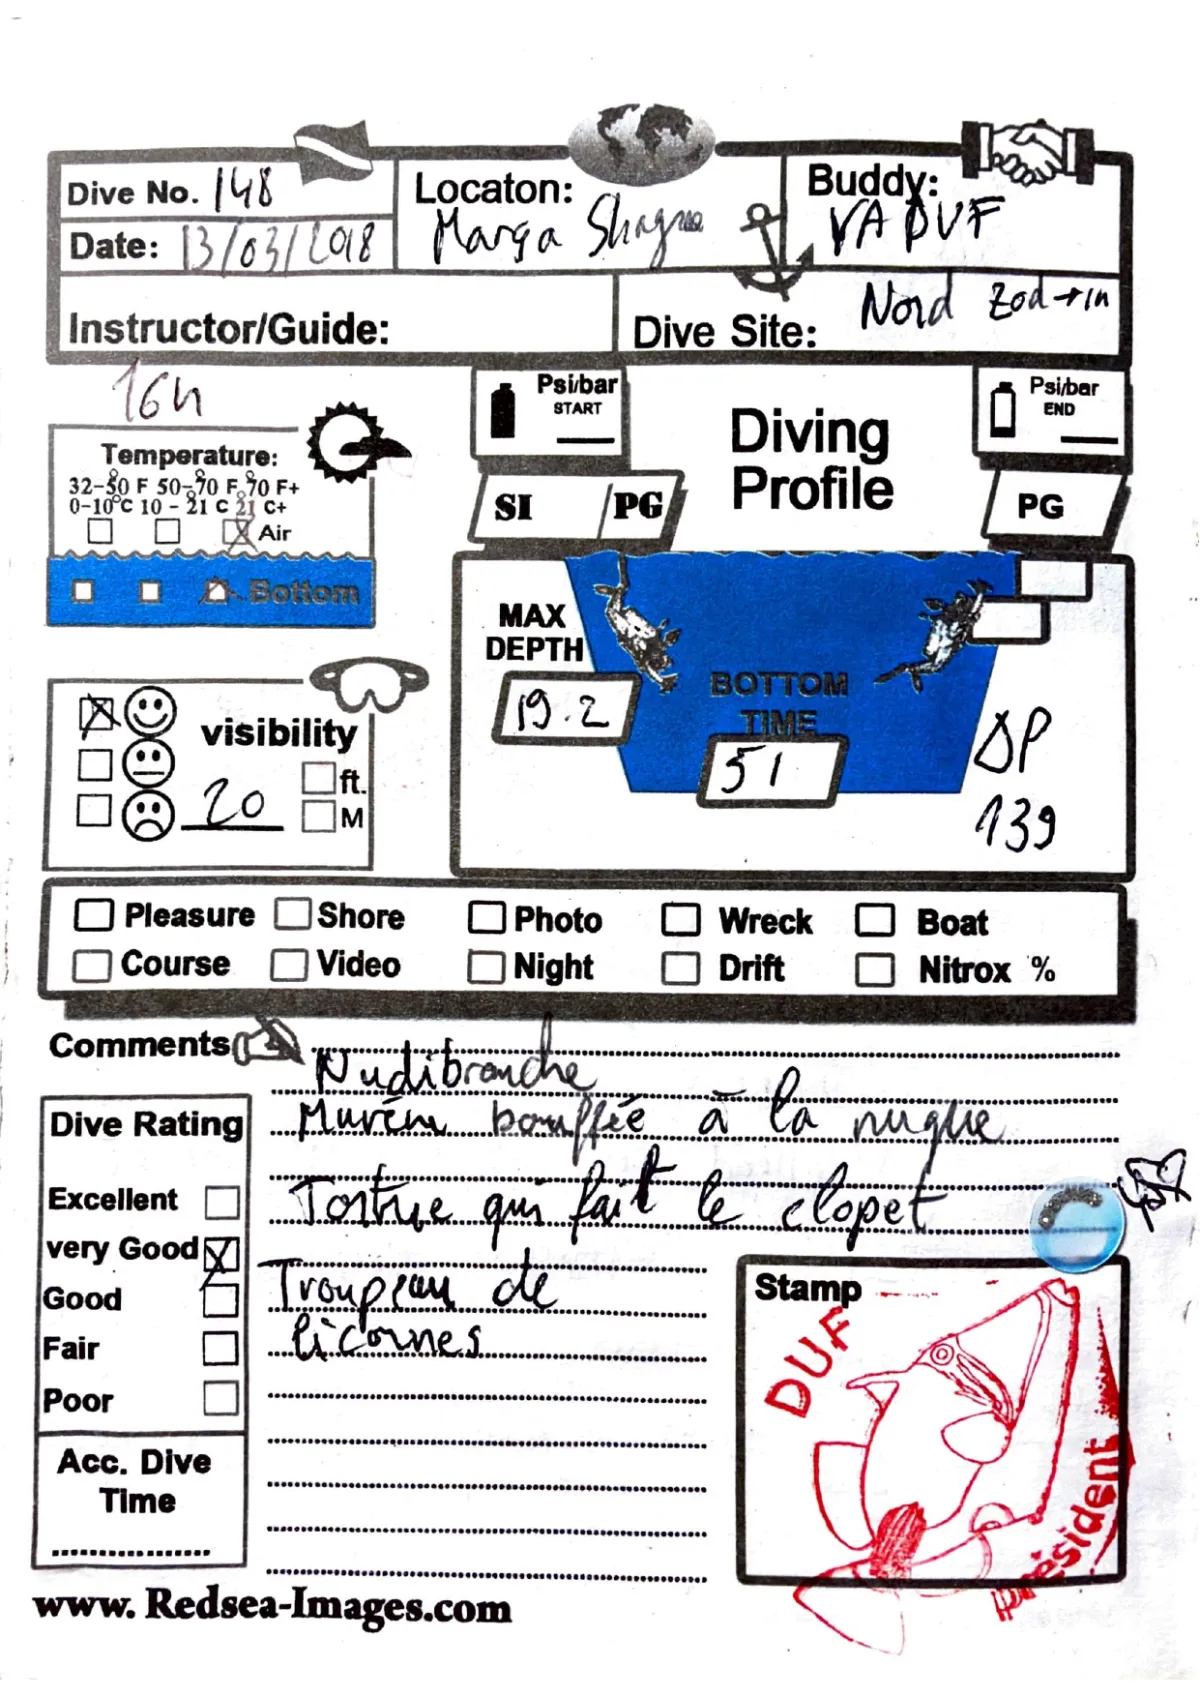 Dive No. 148
Date: 13/03/2018
Locaton:
Marsa Shagra
Buddy:
VADUF
Instructor/Guide:
Dive Site: Nord Zod→in
16h
Temperature:
32-50 F 50-70 F 70 F+
0-10°C 10 - 21 C 21 C+
Air
Bottom
Psi/bar
START
Diving
Profile
Psi/bar
END
SI / PG
PG
MAX
DEPTH
19.2
BOTTOM
TIME
51
ΔP
139
visibility
20
ft.
M
Pleasure Shore Photo Wreck Boat
Course Video Night Drift Nitrox %
Comments
Nudibranche
Murène bouffée à la nuque
Tortue qui fait le clopet
Troupeau de
licornes
Dive Rating
Excellent
very Good
Good
Fair
Poor
Acc. Dive
Time
Stamp
DUF
président
www. Redsea-Images.com